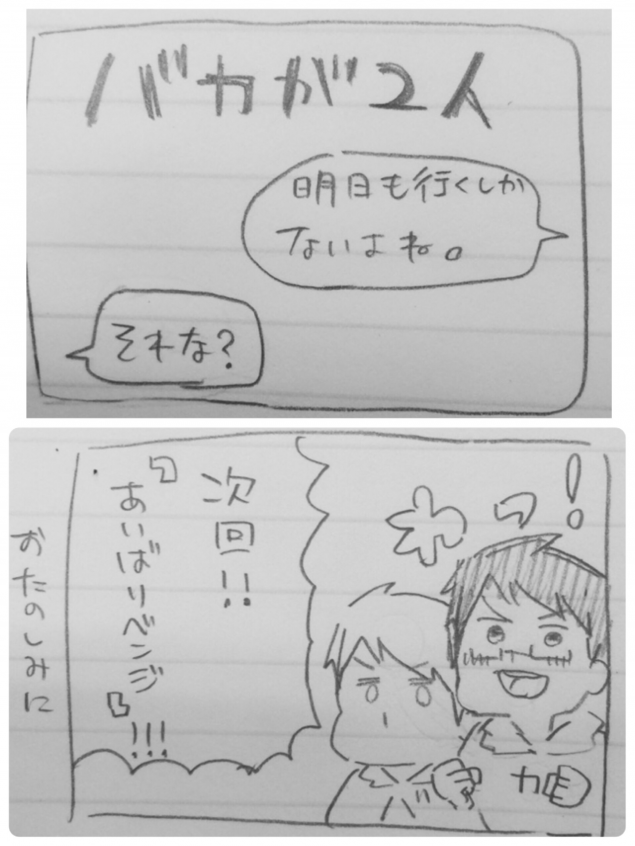 バカが2人
明日も行くしか
ないよね。
それな?
次回!!
『あいばリベンジ』!!!
おたのしみに